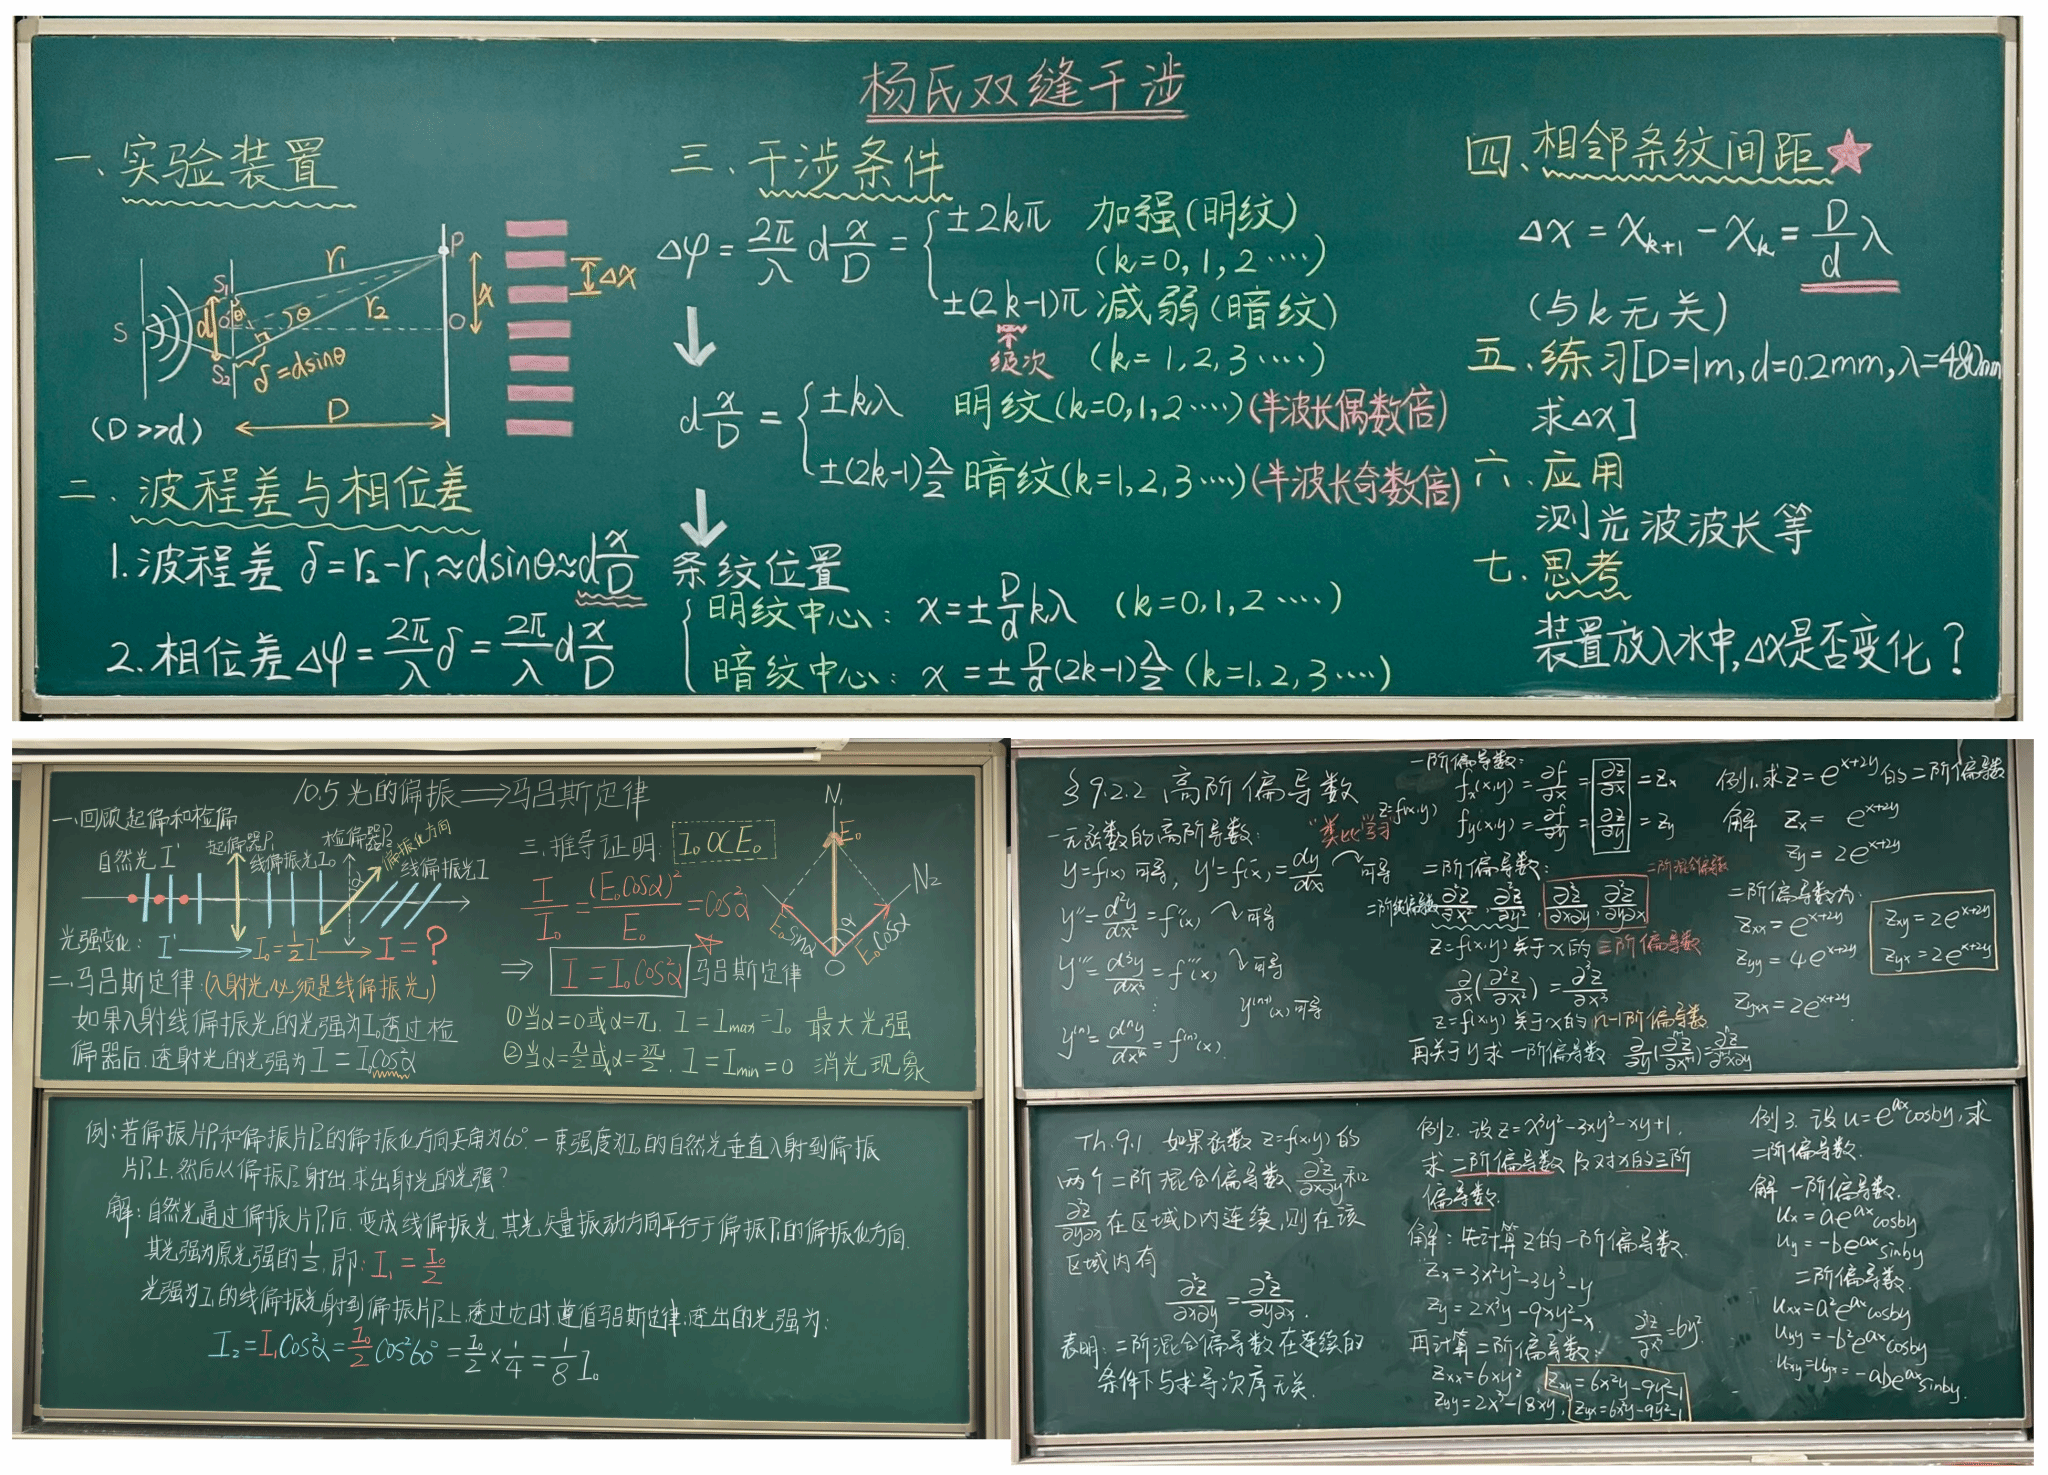 杨氏双缝干涉
一、实验装置
S
S₁
S₂
d
O
θ
θ
r₁
r₂
P
x
O
Δx
δ=dsinθ
D
(D>>d)
二、波程差与相位差
1.波程差 δ=r₂-r₁≈dsinθ≈d x/D
2.相位差Δφ=2π/λ δ=2π/λ d x/D
三、干涉条件
Δφ=2π/λ d x/D={±2kπ 加强(明纹)
(k=0,1,2····)
±(2k-1)π 减弱(暗纹)
级次 (k=1,2,3····)
d x/D={±kλ 明纹(k=0,1,2····)(半波长偶数倍)
±(2k-1)λ/2 暗纹(k=1,2,3····)(半波长奇数倍)
条纹位置
明纹中心: x=±D/d kλ (k=0,1,2····)
暗纹中心: x=±D/d(2k-1)λ/2 (k=1,2,3····)
四、相邻条纹间距
Δx=xₖ₊₁-xₖ=D/d λ
(与k无关)
五.练习[D=1m,d=0.2mm,λ=480nm
求Δx]
六.应用
测光波波长等
七.思考
装置放入水中,Δx是否变化?
10.5光的偏振⟹马吕斯定律
一.回顾起偏和检偏
自然光I'
起偏器P₁
线偏振光I₀
检偏器P₂
偏振化方向
线偏振光I
α
光强变化: I'→I₀=1/2 I'→I=?
二.马吕斯定律:(入射光必须是线偏振光)
如果入射线偏振光的光强为I₀透过检
偏器后,透射光的光强为I=I₀cos²α
三.推导证明: I₀∝E₀
I/I₀=(E₀cosα)²/E₀=cos²α
⟹ I=I₀cos²α 马吕斯定律
①当α=0或α=π. I=Imax=I₀ 最大光强
②当α=π/2或α=3π/2. I=Imin=0 消光现象
N₁
E₀
N₂
α
E₀sinα
E₀cosα
O
例:若偏振片P₁和偏振片P₂的偏振化方向夹角为60°.一束强度为I₀的自然光垂直入射到偏振
片P₁上,然后从偏振P₂射出,求出射光的光强?
解:自然光通过偏振片P₁后,变成线偏振光,其光矢量振动方向平行于偏振P₁的偏振化方向.
其光强为原光强的1/2,即:I₁=I₀/2
光强为I₁的线偏振光射到偏振片P₂上,透过它时,遵循马吕斯定律,透出的光强为:
I₂=I₁cos²α=I₀/2 cos²60°=I₀/2×1/4=1/8 I₀
§9.2.2 高阶偏导数
一元函数的高阶导数:
y=f(x)可导, y'=f'(x)=dy/dx 可导
y''=d²y/dx²=f''(x) 可导
y'''=d³y/dx³=f'''(x) 可导
⋮ y⁽ⁿ⁻¹⁾(x)可导
y⁽ⁿ⁾=dⁿy/dxⁿ=f⁽ⁿ⁾(x).
"类比"学习
z=f(x,y)
一阶偏导数:
fx(x,y)=∂f/∂x=∂z/∂x=zx
fy(x,y)=∂f/∂y=∂z/∂y=zy
二阶偏导数:
二阶混合偏导数
二阶纯偏导数 ∂²z/∂x², ∂²z/∂y², ∂²z/∂x∂y, ∂²z/∂y∂x
z=f(x,y)关于x的三阶偏导数
∂/∂x(∂²z/∂x²)=∂³z/∂x³
z=f(x,y)关于x的n-1阶偏导数
再关于y求一阶偏导数
例1.求z=e^(x+2y)的二阶偏导数
解 zx=e^(x+2y)
zy=2e^(x+2y)
二阶偏导数为:
zxx=e^(x+2y)
zyy=4e^(x+2y)
zyxx=2e^(x+2y).
zxy=2e^(x+2y)
zyx=2e^(x+2y)
Th.9.1 如果函数z=f(x,y)的
两个二阶混合偏导数∂²z/∂x∂y和
∂²z/∂y∂x在区域D内连续,则在该
区域内有
∂²z/∂x∂y=∂²z/∂y∂x.
表明:二阶混合偏导数在连续的
条件下与求导次序无关.
例2.设z=x³y²-3xy³-xy+1,
求二阶偏导数及对x的三阶
偏导数.
解:先计算z的一阶偏导数.
zx=3x²y²-3y³-y
zy=2x³y-9xy²-x
再计算二阶偏导数: ∂³z/∂x³=6y².
zxx=6xy²
zyy=2x³-18xy,
zxy=6x²y-9y²-1
zyx=6x²y-9y²-1
例3.设u=e^(ax)cosby,求
二阶偏导数.
解 一阶偏导数.
ux=ae^(ax)cosby
uy=-be^(ax)sinby
二阶偏导数.
uxx=a²e^(ax)cosby
uyy=-b²e^(ax)cosby
uxy=uyx=-abe^(ax)sinby.